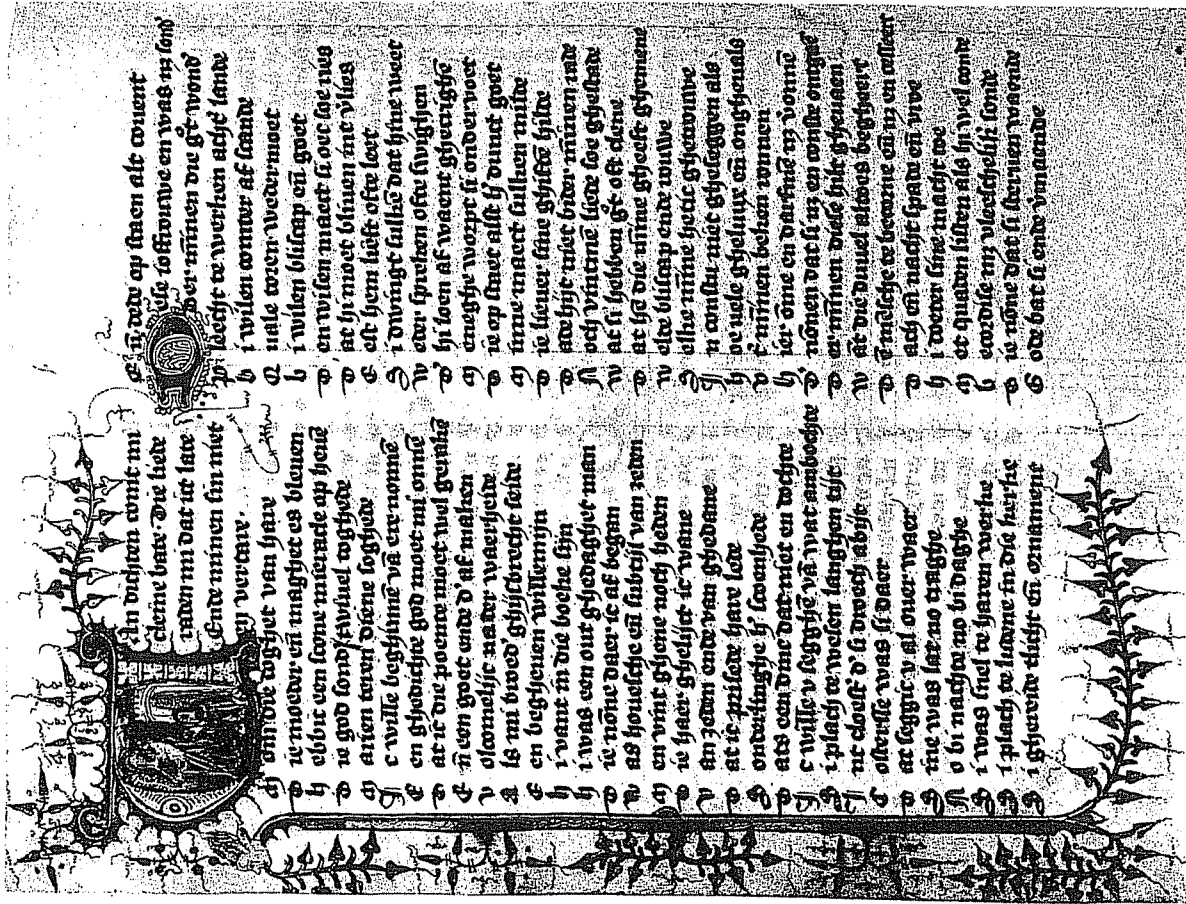 Van dichten comt mi
cleine bate Die liede
raden mi dat ict late
Ende minen sin niet
en vertare.
Maer om die doghet van hare
Die moeder eñ maghet es bleuen
hebbic een scone mieracle op heuē
Die god sond' twiuel toghede
Marien teren diene soghede
Ic wille beghinnē vā ere nonnē
Een ghedichte god moet mi onnē
Dat ic die poente moet wel gerakē
Eñ een goet ende d' af maken
Volcomelijc na der waerheide
Als mi broed' ghijsbrecht seide
Een begheuen willemijn
hi vant in die boeke sijn
hi was een out ghedaghet man
Die nōne daer ic af began
Was houesche eñ subtijl van zeden
Men vint ghene noch heden
Die haer ghelijct ic wane
Van zeden ende van ghedane
Dat ic prisede hare lede
Sonderlinghe h' scoenhede
Dats een dinc dat niet en dochte
Ic wille v segghē vā wat ambochte
Si plach te wesen langhen tijt
Int cloest' d' si droech abijt
Costersse was si daer
Dat seggic v al ouer waer
Sine was lat no traghe
No bi nachte no bi daghe
Si was snel te haren werke
Si plach te ludene in die kerke
Si ghereide tlicht eñ ornament
Eñ dede op staen alt couent
Dese ioffrouwe en was niet sond'
Der minnen die gt wond'
Pleecht te werken achtr lande
bi wilen comter af scande
Quale toren wedermoet
bi wilen bliscap eñ goet
Den wisen maect si oec soe ries
Dat hi moet bliuen int v'lies
Eest hem lieft ofte leet
Si dwingt sulkē dat hine weet
Weder spreken ofte swighen
D' hi loen af waent ghecrighē
Meneghe worpt si onder voet
Die op staet alst h' dunct goet
Minne maect sulken milde
Die lieuer sine ghiften hilde
Dade hijt niet bider minnen rade
Noch vintmē liede soe ghestade
Wat si hebben gt oft clene
Dat hen die minne gheeft ghemene
Welde bliscap ende rouwe
Selke minne hetic ghetrouwe
In constu niet gheseggen als
hoe vele gheluux eñ ongheuals
Vter minnen beken ronnen
hier ōme en darfmē niet v'donnē
D' nōnen dat si niet en conste ontgaē
Der minnen diese hilt gheuaen
Want die duuel altoos begheert
Den mensche te becorne eñ niet en cesseert
Dach eñ nacht spade eñ vroe
hi doeter sine macht toe
Met quaden listen als hi wel conde
becordise met vleescheliker sonde
Die nōne dat si steruen waende
Gode bat si ende vmaende